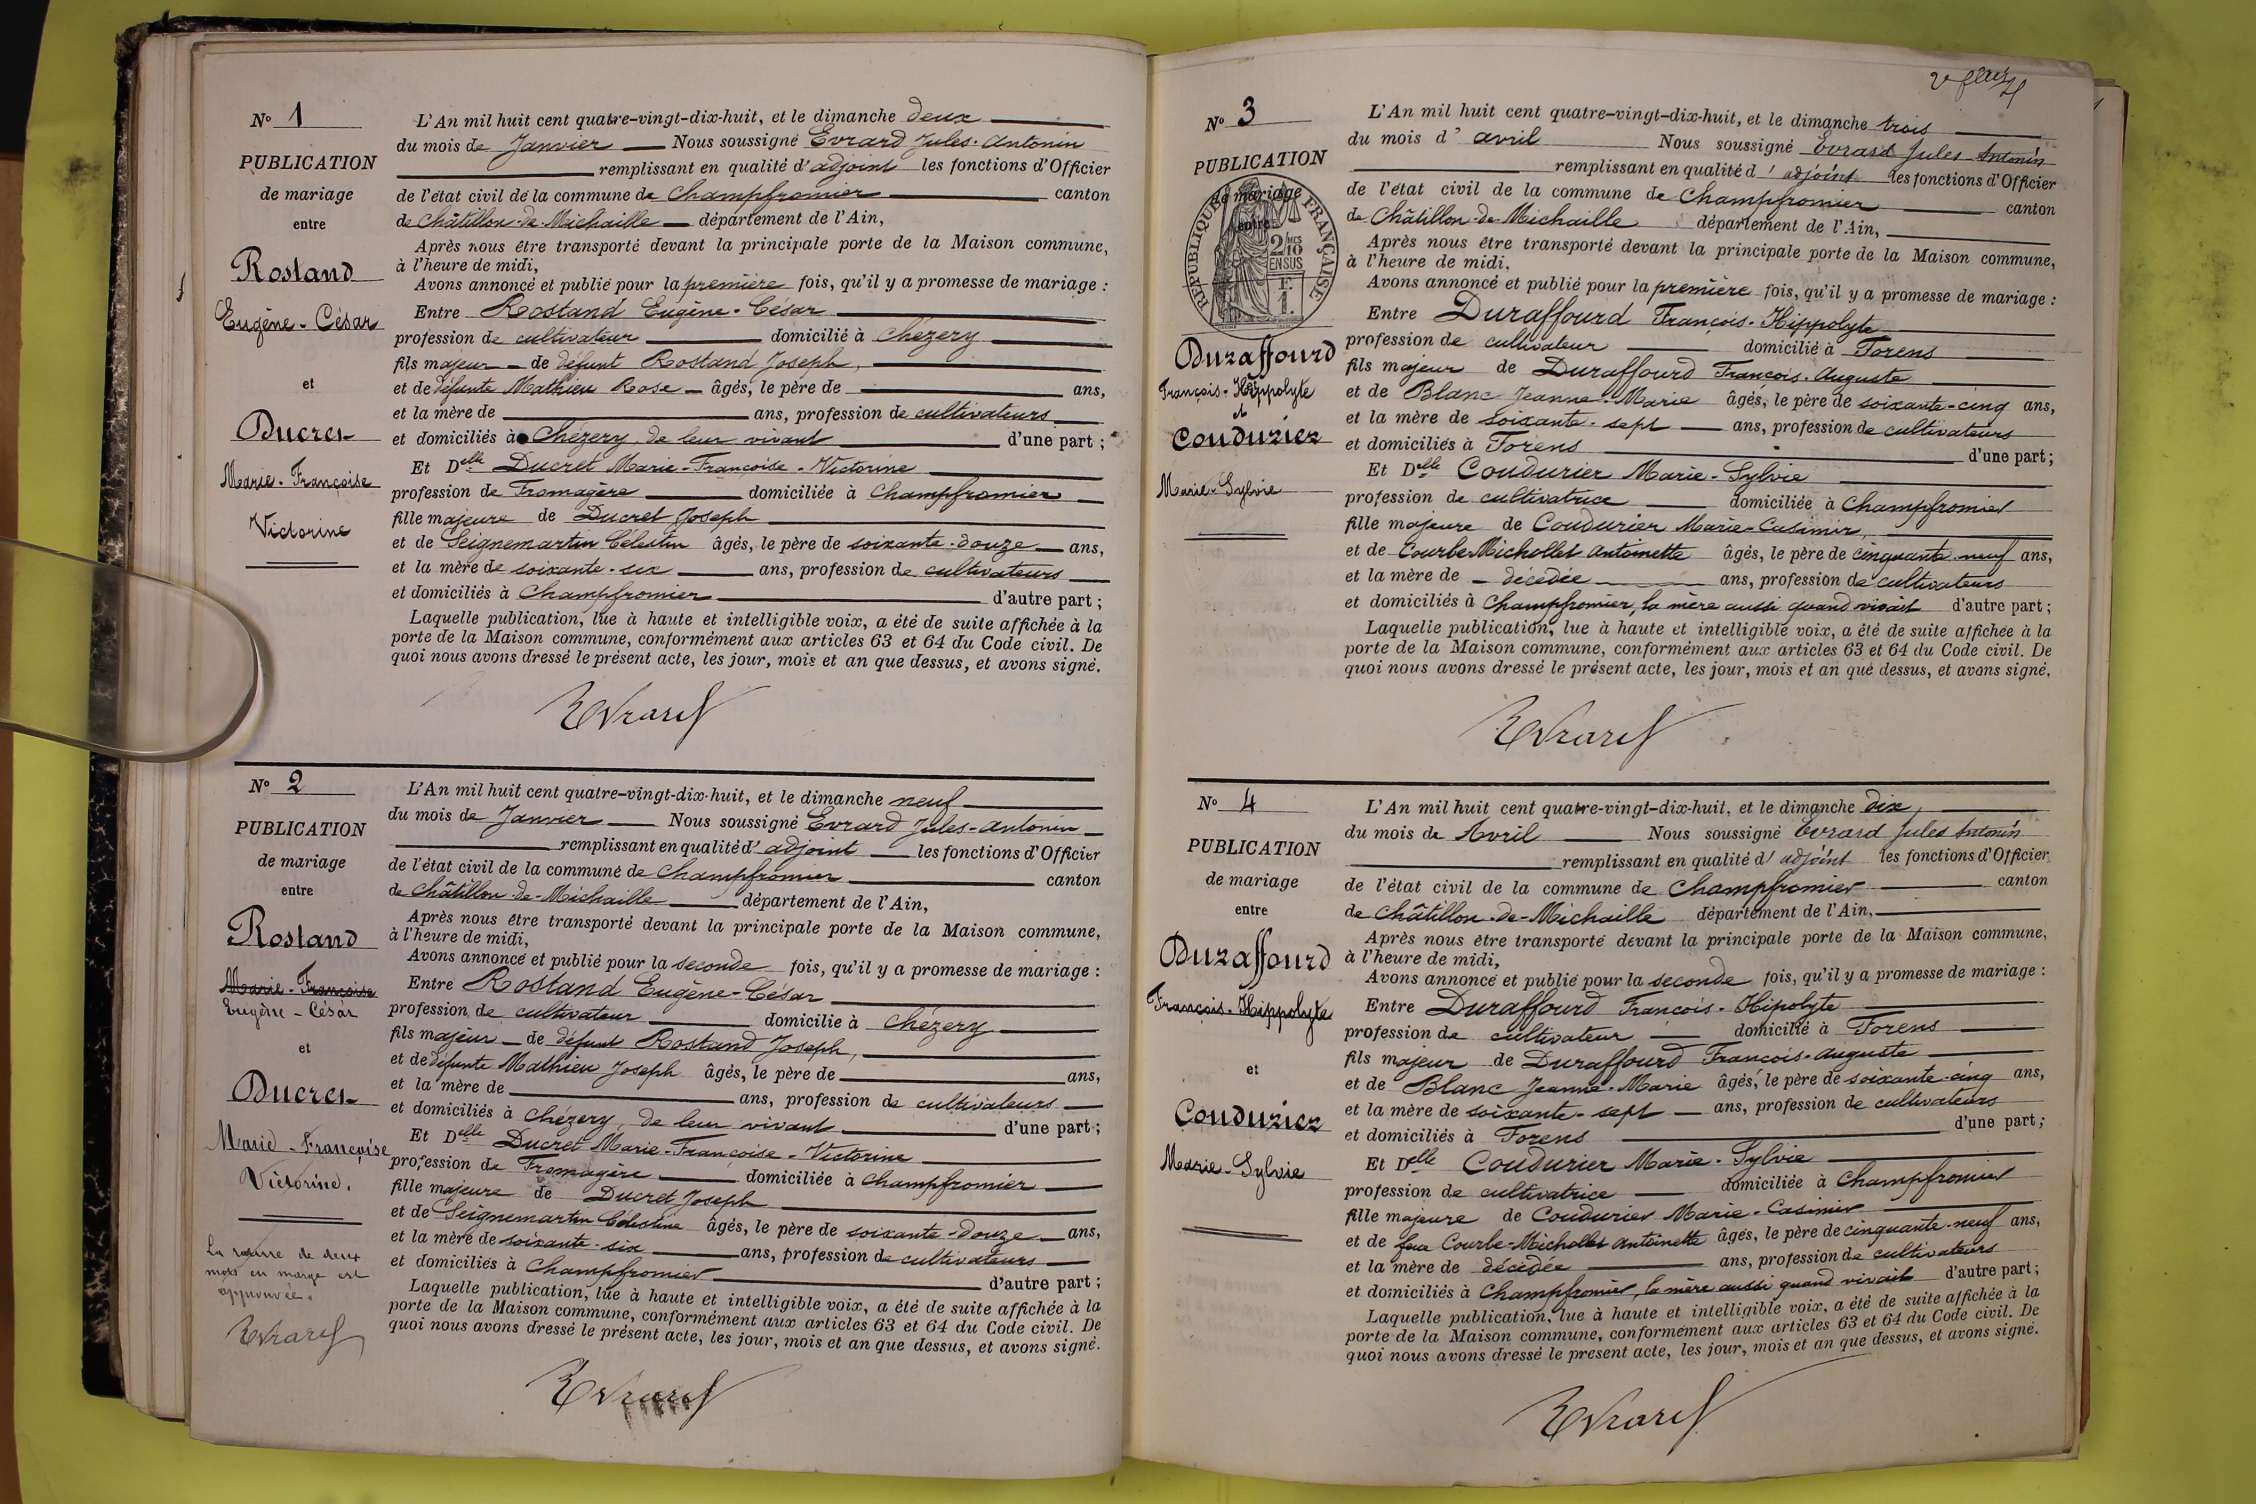 No 1
PUBLICATION
de mariage
entre
Rostand
Eugène-César
et
Ducret
Marie-Françoise
Victorine
L'An mil huit cent quatre-vingt-dix-huit, et le dimanche deux
du mois de Janvier Nous soussigné Evrard Jules-Antonin
remplissant en qualité d'adjoint les fonctions d'Officier
de l'état civil de la commune de Champfromier canton
de Châtillon-de-Michaille département de l'Ain,
Après nous être transporté devant la principale porte de la Maison commune,
à l'heure de midi,
Avons annoncé et publié pour la première fois, qu'il y a promesse de mariage :
Entre Rostand Eugène-César
profession de cultivateur domicilié à Chézery
fils majeur de défunt Rostand Joseph,
et de défunte Mathieu Rose âgés, le père de ans,
et la mère de ans, profession de cultivateurs
et domiciliés à Chézery de leur vivant d'une part ;
Et Delle Ducret Marie-Françoise-Victorine
profession de Fromagère domiciliée à Champfromier
fille majeure de Ducret Joseph
et de Seignemartin Célestin âgés, le père de soixante-douze ans,
et la mère de soixante-six ans, profession de cultivateurs
et domiciliés à Champfromier d'autre part ;
Laquelle publication, lue à haute et intelligible voix, a été de suite affichée à la
porte de la Maison commune, conformément aux articles 63 et 64 du Code civil. De
quoi nous avons dressé le présent acte, les jour, mois et an que dessus, et avons signé.
Evrard
No 2
PUBLICATION
de mariage
entre
Rostand
Marie-Françoise
Eugène-César
et
Ducret
Marie-Françoise
Victorine.
La rature de deux
mots en marge est
approuvée.
Evrard
L'An mil huit cent quatre-vingt-dix-huit, et le dimanche neuf
du mois de Janvier Nous soussigné Evrard Jules-Antonin
remplissant en qualité d'adjoint les fonctions d'Officier
de l'état civil de la commune de Champfromier canton
de Châtillon-de-Michaille département de l'Ain,
Après nous être transporté devant la principale porte de la Maison commune,
à l'heure de midi,
Avons annoncé et publié pour la seconde fois, qu'il y a promesse de mariage :
Entre Rostand Eugène-César
profession de cultivateur domicilié à Chézery
fils majeur de défunt Rostand Joseph,
et de défunte Mathieu Joseph âgés, le père de ans,
et la mère de ans, profession de cultivateurs
et domiciliés à Chézery, de leur vivant d'une part ;
Et Delle Ducret Marie-Françoise-Victorine
profession de Fromagère domiciliée à Champfromier
fille majeure de Ducret Joseph
et de Seignemartin Célestine âgés, le père de soixante-douze ans,
et la mère de soixante-six ans, profession de cultivateurs
et domiciliés à Champfromier d'autre part ;
Laquelle publication, lue à haute et intelligible voix, a été de suite affichée à la
porte de la Maison commune, conformément aux articles 63 et 64 du Code civil. De
quoi nous avons dressé le présent acte, les jour, mois et an que dessus, et avons signé.
Evrard
No 3
PUBLICATION
de mariage
entre
RÉPUBLIQUE FRANÇAISE
2/10
EN SUS
F.
1.
Duraffourd
François-Hippolyte
et
Coudurier
Marie-Sylvie
L'An mil huit cent quatre-vingt-dix-huit, et le dimanche trois
du mois d'avril Nous soussigné Evrard Jules Antonin
remplissant en qualité d'adjoint les fonctions d'Officier
de l'état civil de la commune de Champfromier canton
de Châtillon-de-Michaille département de l'Ain,
Après nous être transporté devant la principale porte de la Maison commune,
à l'heure de midi,
Avons annoncé et publié pour la première fois, qu'il y a promesse de mariage :
Entre Duraffourd François-Hippolyte
profession de cultivateur domicilié à Forens
fils majeur de Duraffourd François-Auguste
et de Blanc Jeanne-Marie âgés, le père de soixante-cinq ans,
et la mère de soixante-sept ans, profession de cultivateurs
et domiciliés à Forens d'une part ;
Et Delle Coudurier Marie-Sylvie
profession de cultivatrice domiciliée à Champfromier
fille majeure de Coudurier Marie-Casimir,
et de Courbe-Michollet Antoinette âgés, le père de cinquante-neuf ans,
et la mère de décédée ans, profession de cultivateurs
et domiciliés à Champfromier, la mère aussi quand vivait d'autre part ;
Laquelle publication, lue à haute et intelligible voix, a été de suite affichée à la
porte de la Maison commune, conformément aux articles 63 et 64 du Code civil. De
quoi nous avons dressé le présent acte, les jour, mois et an que dessus, et avons signé.
Evrard
No 4
PUBLICATION
de mariage
entre
Duraffourd
François-Hippolyte
et
Coudurier
Marie-Sylvie
L'An mil huit cent quatre-vingt-dix-huit, et le dimanche dix,
du mois de Avril Nous soussigné Evrard Jules Antonin
remplissant en qualité d'adjoint les fonctions d'Officier
de l'état civil de la commune de Champfromier canton
de Châtillon-de-Michaille département de l'Ain,
Après nous être transporté devant la principale porte de la Maison commune,
à l'heure de midi,
Avons annoncé et publié pour la seconde fois, qu'il y a promesse de mariage :
Entre Duraffourd François-Hipolyte
profession de cultivateur domicilié à Forens
fils majeur de Duraffourd François-Auguste
et de Blanc Jeanne-Marie âgés, le père de soixante-cinq ans,
et la mère de soixante-sept ans, profession de cultivateurs
et domiciliés à Forens d'une part ;
Et Delle Coudurier Marie-Sylvie
profession de cultivatrice domiciliée à Champfromier
fille majeure de Coudurier Marie-Casimir
et de feue Courbe-Michollet Antoinette âgés, le père de cinquante-neuf ans,
et la mère de décédée ans, profession de cultivateurs
et domiciliés à Champfromier, la mère aussi quand vivait d'autre part ;
Laquelle publication, lue à haute et intelligible voix, a été de suite affichée à la
porte de la Maison commune, conformément aux articles 63 et 64 du Code civil. De
quoi nous avons dressé le présent acte, les jour, mois et an que dessus, et avons signé.
Evrard